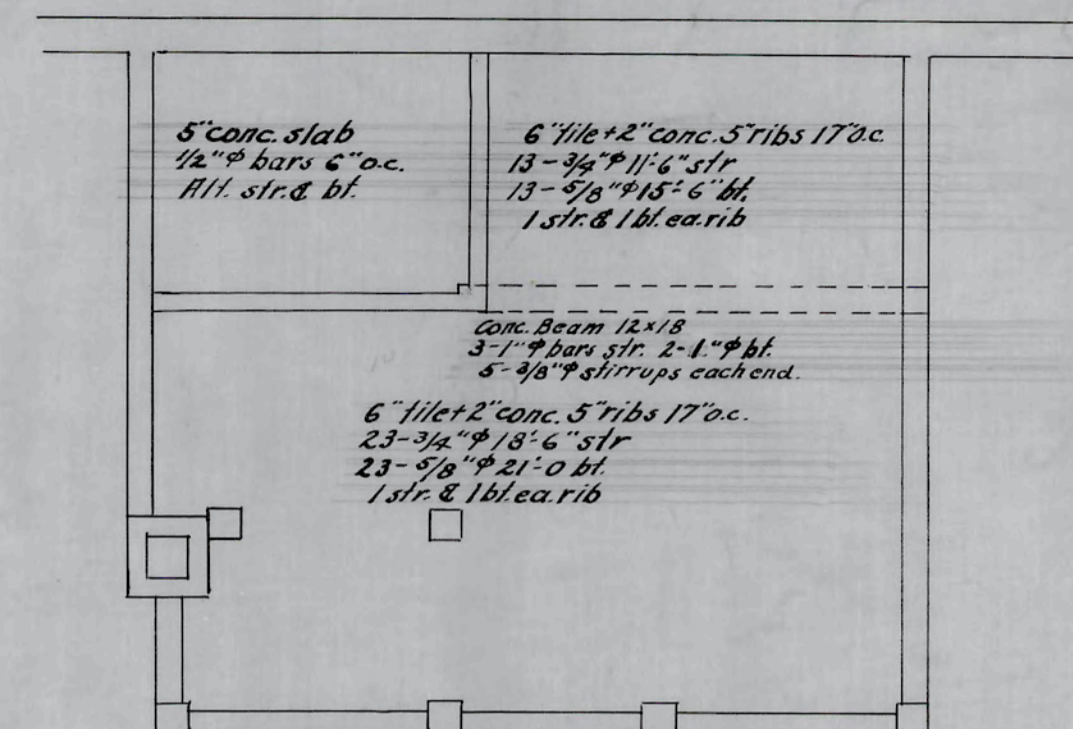 5" conc. slab
1/2" φ bars 6" o.c.
Alt. str. & bt.
6" tile + 2" conc. 5" ribs 17" o.c.
13 - 3/4" φ 11'-6" str
13 - 5/8" φ 15'-6" bt.
1 str. & 1 bt. ea. rib
Conc. Beam 12x18
3-1" φ bars str. 2-1" φ bt.
5-3/8" φ stirrups each end.
6" tile + 2" conc. 5" ribs 17" o.c.
23-3/4" φ 18'-6" str
23-5/8" φ 21'-0 bt.
1 str. & 1 bt. ea. rib